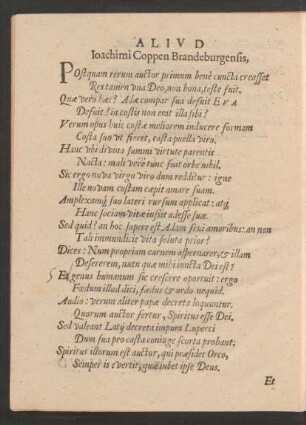 ALIVD
Ioachimi Coppen Brandeburgensis,
POstquam rerum auctor primum benè cuncta creasset
Res tamen vna Deo, non bona, teste fuit.
Quæ verò hæc? Adæ compar sua defuit EVA
Defuit? in costis non erat illa sibi?
Verum opus huic costæ meliorem inducere formam
Costa suo vt fieret, casta puella viro.
Hanc vbi diuina summi virtute parentis
Nacta: mali verò tunc fuit orbe nihil.
Sic ergo noua virgo viro dum redditur: igne
Ille nouam costam cæpit amare suam.
Amplexamq́ suo lateri rursum applicat: atq́
Hanc sociam vitæ insit adesse suæ.
Sed quid? an hoc sapere est Adam sini amoribus: an non
Tali immundicie vita soluta prior?
Dices: Num propriam carnem aspernarer, & illam
Desererem, nutu quæ mihi iuncta Dei est?
Et genus humanum sic crescere oportuit: ergo
Fœdum illud dici, fœdus & ordo nequid.
Audio: verum aliter papæ decreta loquuntur.
Quorum auctor fertur, Spiritus esse Dei.
Sed valeant Latij decreta impura Luperci
Dum sua pro casta coniuge scorta probant:
Spiritus illorum est auctor, qui præsidet Orco,
Semper is euertit, quæ iubet ipse Deus.
Et